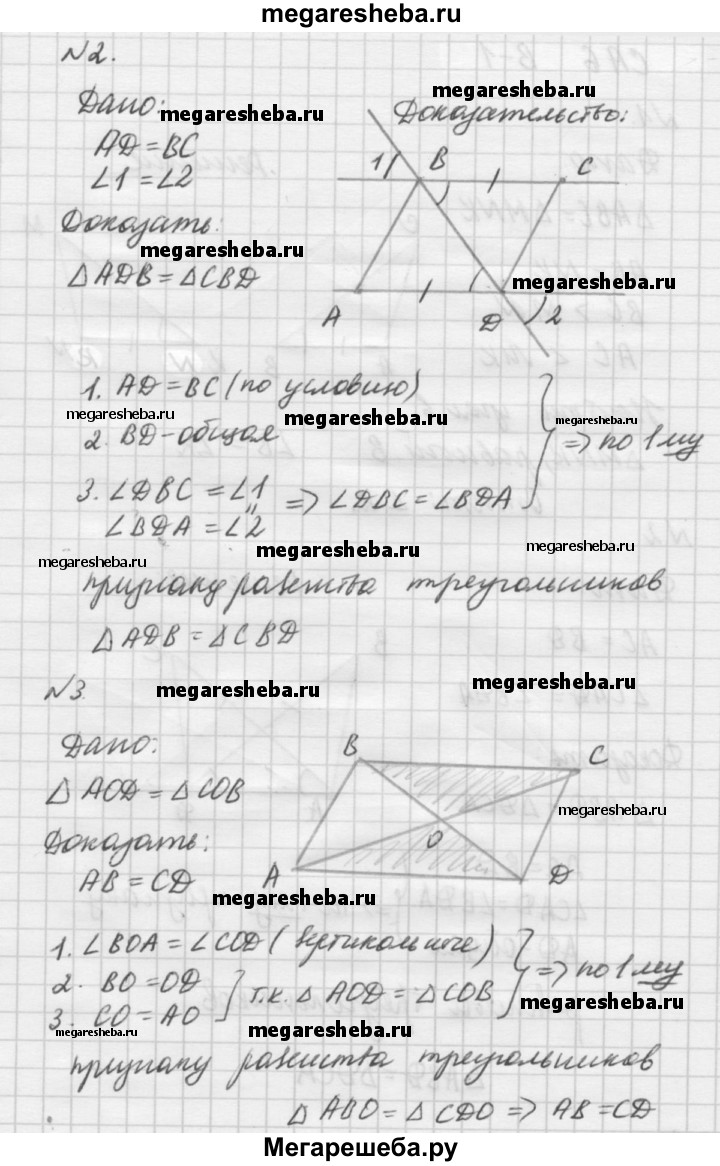 megaresheba.ru
№2.
Дано:
megaresheba.ru
AD=BC
∠1=∠2
Доказать:
megaresheba.ru
△ADB=△CBD
megaresheba.ru
Доказательство:
megaresheba.ru
1 B C
A D 2
megaresheba.ru
1. AD=BC (по условию)
megaresheba.ru megaresheba.ru megaresheba.ru
2. BD-общая
=> по 1му
3. ∠DBC = ∠1 => ∠DBC=∠BDA
"
∠BDA = ∠2
megaresheba.ru megaresheba.ru
megaresheba.ru
признаку равенства треугольников
△ADB=△CBD
№3.
megaresheba.ru megaresheba.ru
Дано:
△AOD=△COB
Доказать:
megaresheba.ru
AB=CD
B C
O
megaresheba.ru
A D
megaresheba.ru
1. ∠BOA=∠COD (вертикальные)
2. BO=OD
т.к. △AOD=△COB => по 1му
3. CO=AO
megaresheba.ru
megaresheba.ru megaresheba.ru
признаку равенства треугольников
megaresheba.ru
△ABO=△CDO => AB=CD
Мегарешеба.ру